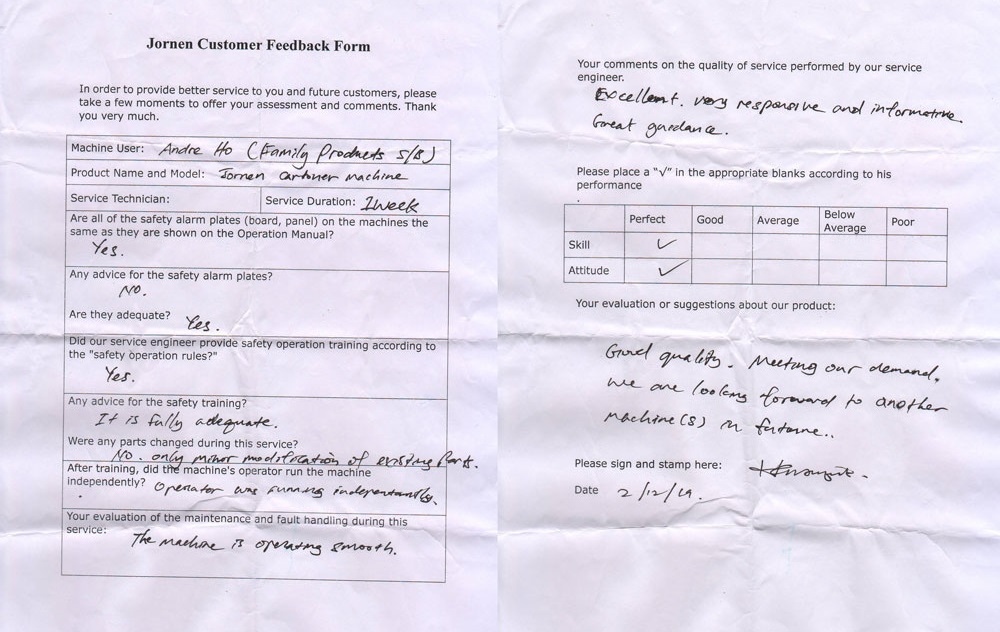 Jornen Customer Feedback Form
In order to provide better service to you and future customers, please
take a few moments to offer your assessment and comments. Thank
you very much.
Machine User: Andre Ho (Family Products S/B)
Product Name and Model: Jornen cartoner machine
Service Technician: Service Duration: 1 week
Are all of the safety alarm plates (board, panel) on the machines the
same as they are shown on the Operation Manual?
Yes.
Any advice for the safety alarm plates?
NO.
Are they adequate? Yes.
Did our service engineer provide safety operation training according to
the "safety operation rules?"
Yes.
Any advice for the safety training?
It is fully adequate.
Were any parts changed during this service?
No. only minor modification of existing parts.
After training, did the machine's operator run the machine
independently? Operator was running independently.
Your evaluation of the maintenance and fault handling during this
service: The machine is operating smooth.
Your comments on the quality of service performed by our service
engineer.
Excellent. very responsive and informative.
Great guidance.
Please place a "√" in the appropriate blanks according to his
performance
Perfect Good Average Below Average Poor
Skill ✓
Attitude ✓
Your evaluation or suggestions about our product:
Good quality. Meeting our demand.
We are looking forward to another
machine(s) in future..
Please sign and stamp here:
Date 2/12/19.